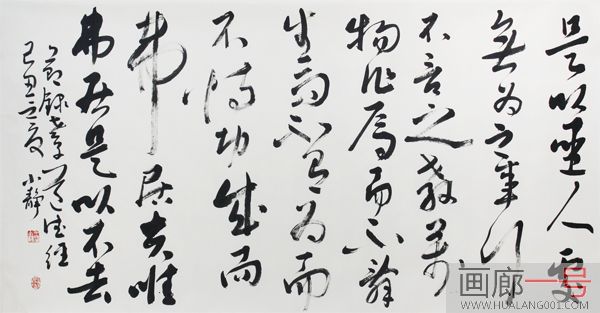 是以聖人處
無為之事行
不言之教萬
物作焉而不辭
生而不有為而
不恃功成而
弗居夫唯
弗居是以不去
節錄老子道德經
己丑之夏 小静
画廊一号
WWW.HUALANG001.COM